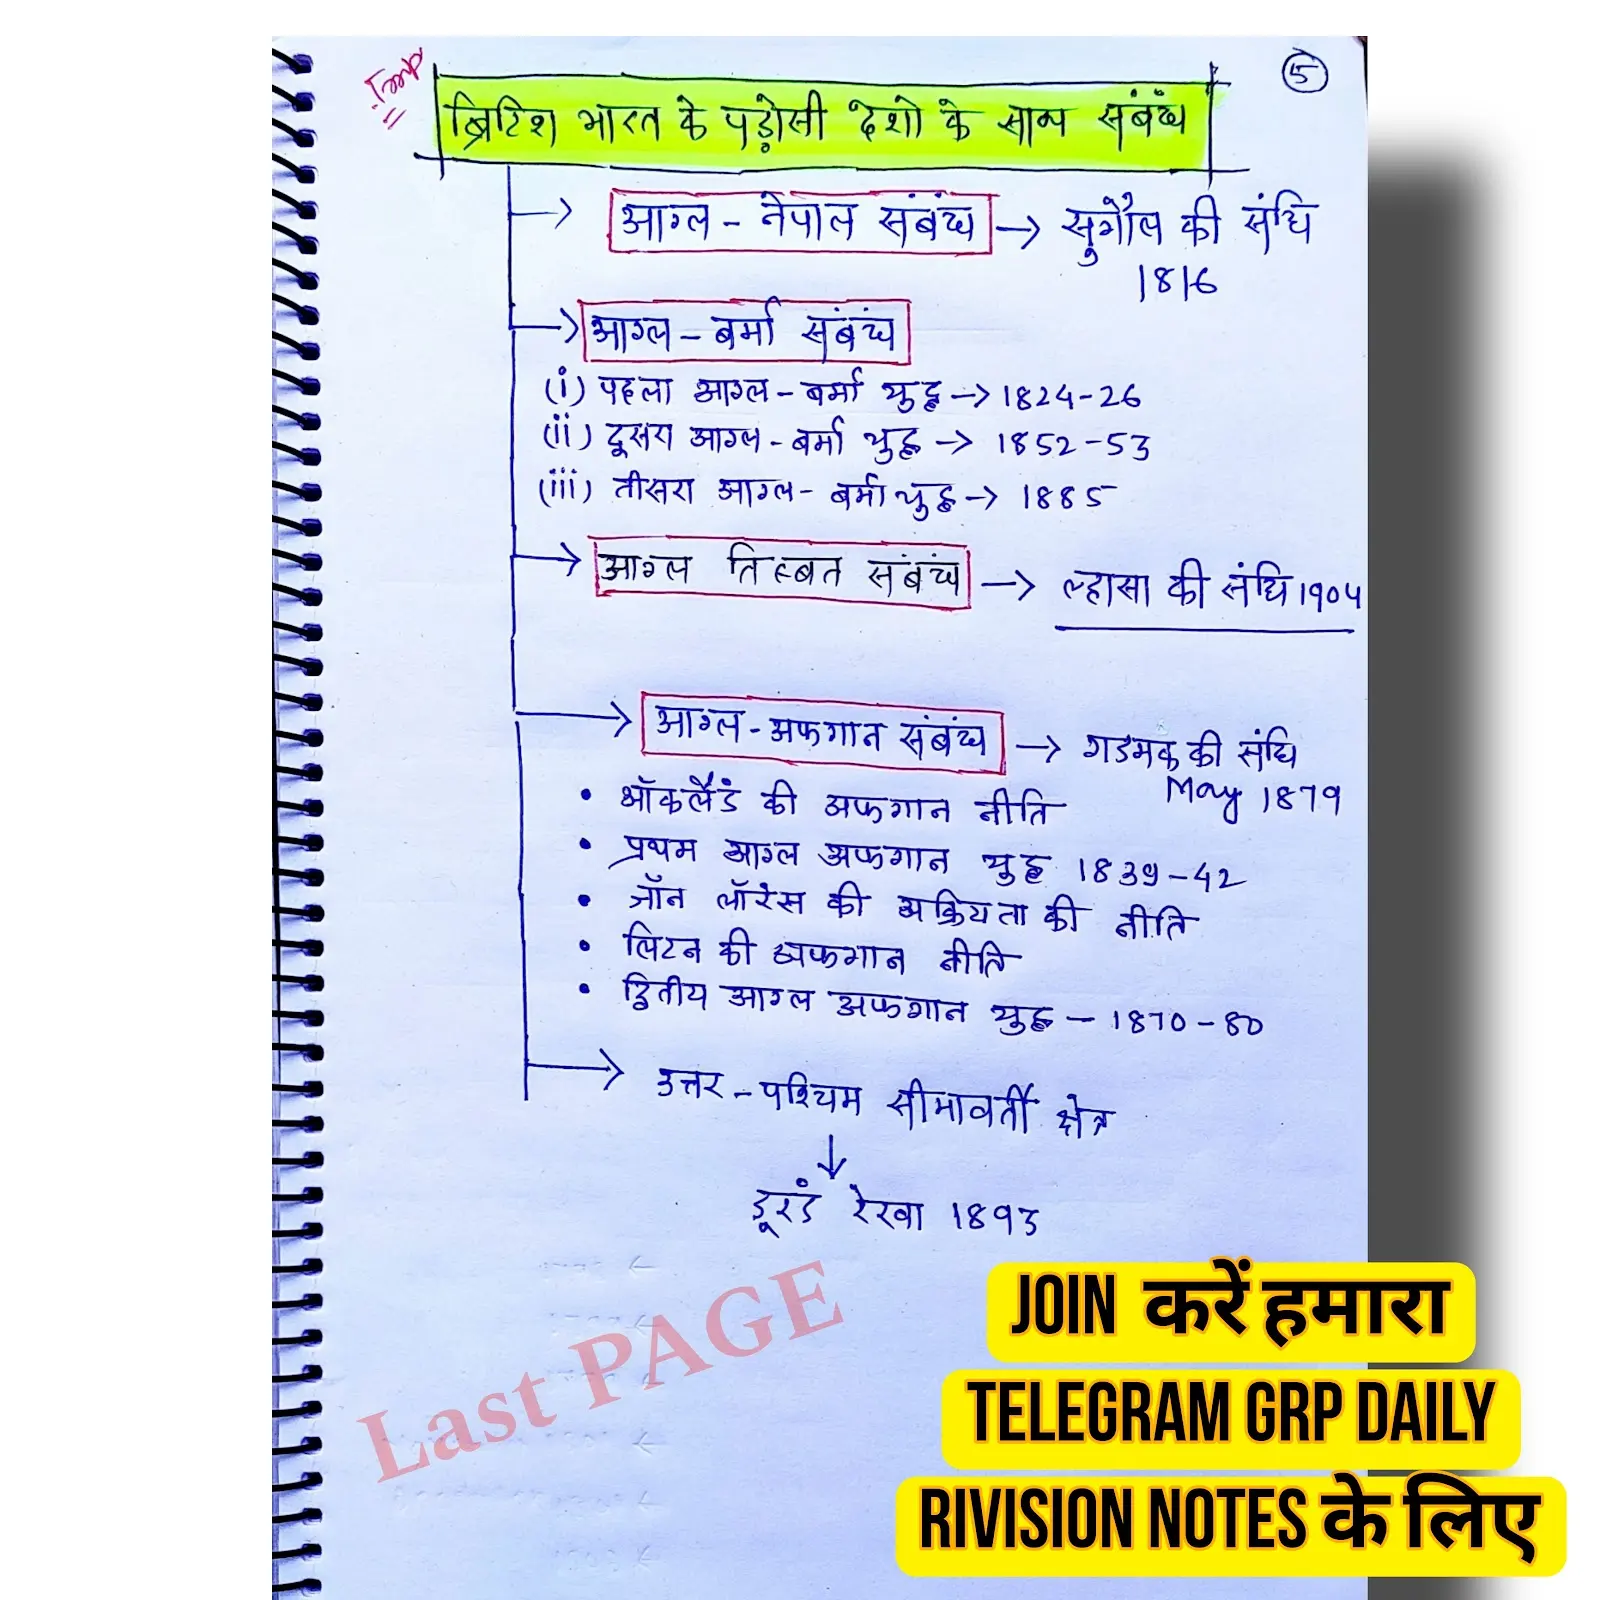 Imp
5
ब्रिटिश भारत के पड़ोसी देशो के साथ संबंध
आंग्ल - नेपाल संबंध → सुगौल की संधि
1816
आंग्ल - बर्मा संबंध
(i) पहला आंग्ल - बर्मा युद्ध → 1824-26
(ii) दूसरा आंग्ल - बर्मा युद्ध → 1852-53
(iii) तीसरा आंग्ल - बर्मा युद्ध → 1885
आंग्ल तिब्बत संबंध → ल्हासा की संधि 1904
आंग्ल - अफगान संबंध → गडमक की संधि
May 1879
• ऑकलैंड की अफगान नीति
• प्रथम आंग्ल अफगान युद्ध 1839-42
• जॉन लॉरेंस की अक्रियता की नीति
• लिटन की अफगान नीति
• द्वितीय आंग्ल अफगान युद्ध - 1870-80
उत्तर - पश्चिम सीमावर्ती क्षेत्र
↓
डूरंड रेखा 1893
Last PAGE
JOIN करें हमारा
TELEGRAM GRP DAILY
RIVISION NOTES के लिए